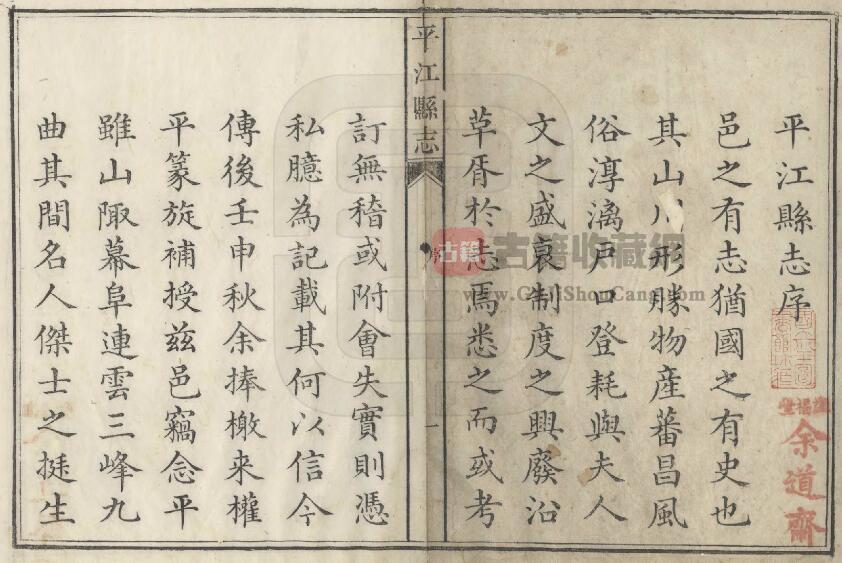 平江縣志序
邑之有志猶國之有史也
其山川形勝物產蕃昌風
俗淳漓戶口登耗與夫人
文之盛衰制度之興廢沿
草胥於志焉悉之而或考
平江縣志
序
一
訂無稽或附會失實則憑
私臆為記載其何以信今
傳後壬申秋余捧檄來權
平篆旋補授兹邑竊念平
雖山陬幕阜連雲三峰九
曲其間名人傑士之挺生
余道齋
古籍
古籍收藏網
www.GujiShouCang.com